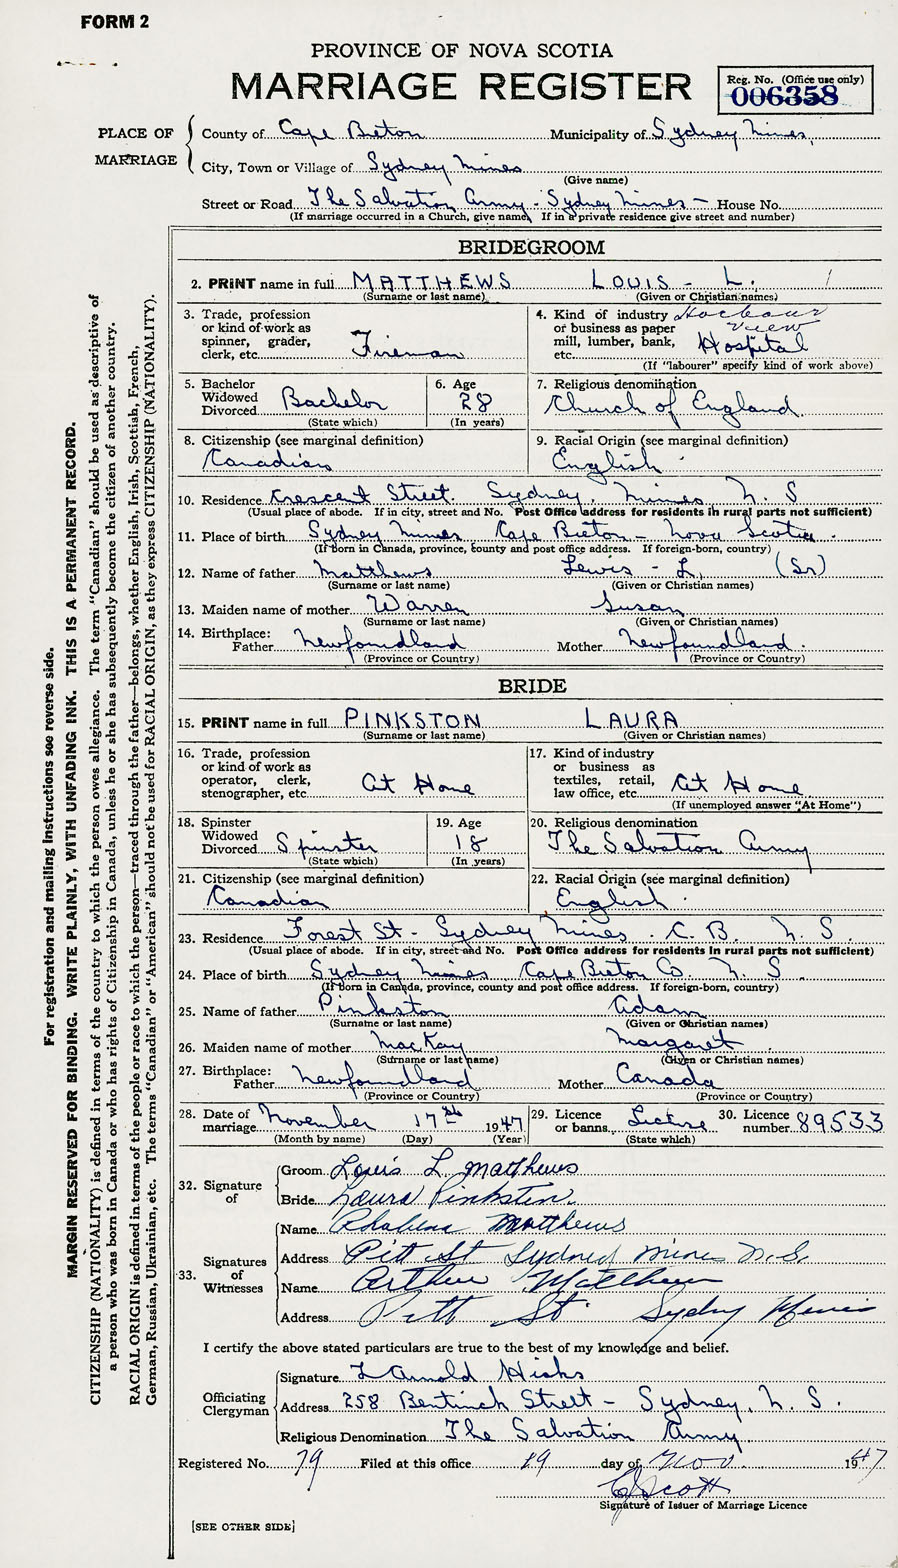 FORM 2
PROVINCE OF NOVA SCOTIA
MARRIAGE REGISTER
Reg. No. (Office use only)
006358
PLACE OF MARRIAGE
County of Cape Breton Municipality of Sydney Mines,
City, Town or Village of Sydney Mines
(Give name)
Street or Road The Salvation Army - Sydney Mines - House No.
(If marriage occurred in a Church, give name, If in a private residence give street and number)
BRIDEGROOM
2. PRINT name in full MATTHEWS LOUIS - L.
(Surname or last name) (Given or Christian names)
3. Trade, profession or kind of work as spinner, grader, clerk, etc. Fireman
4. Kind of industry or business as paper mill, lumber, bank, etc. Harbour View Hospital
(If "labourer" specify kind of work above)
5. Bachelor Widowed Divorced Bachelor
(State which)
6. Age 28
(In years)
7. Religious denomination
Church of England
8. Citizenship (see marginal definition)
Canadian
9. Racial Origin (see marginal definition)
English
10. Residence Crescent Street. Sydney, Mines N. S
(Usual place of abode. If in city, street and No. Post Office address for residents in rural parts not sufficient)
11. Place of birth Sydney Mines Cape Breton - Nova Scotia.
(If born in Canada, province, county and post office address. If foreign-born, country)
12. Name of father Matthews Lewis - L. (Sr)
(Surname or last name) (Given or Christian names)
13. Maiden name of mother Warren Susan
(Surname or last name) (Given or Christian names)
14. Birthplace: Father Newfoundland Mother Newfoundland.
(Province or Country) (Province or Country)
BRIDE
15. PRINT name in full PINKSTON LAURA
(Surname or last name) (Given or Christian names)
16. Trade, profession or kind of work as operator, clerk, stenographer, etc. At Home
17. Kind of industry or business as textiles, retail, law office, etc. At Home
(If unemployed answer "At Home")
18. Spinster Widowed Divorced Spinster
(State which)
19. Age 18
(In years)
20. Religious denomination
The Salvation Army
21. Citizenship (see marginal definition)
Canadian
22. Racial Origin (see marginal definition)
English.
23. Residence Forest St - Sydney Mines. C. B. N. S.
(Usual place of abode. If in city, street and No. Post Office address for residents in rural parts not sufficient)
24. Place of birth Sydney Mines Cape Breton Co. N. S.
(If born in Canada, province, county and post office address. If foreign-born, country)
25. Name of father Pinkston Adam
(Surname or last name) (Given or Christian names)
26. Maiden name of mother MacKay Margaret
(Surname or last name) (Given or Christian names)
27. Birthplace: Father Newfoundland Mother Canada
(Province or Country) (Province or Country)
28. Date of marriage November 17th 1947
(Month by name) (Day) (Year)
29. Licence or banns License
(State which)
30. Licence number 89533
32. Signature of
Groom Louis L Matthews
Bride Laura Pinkston
33. Signatures of Witnesses
Name Matthews
Address Pitt St Sydney Mines N.S.
Name Arthur Matthews
Address Pitt St. Sydney Mines
I certify the above stated particulars are true to the best of my knowledge and belief.
Officiating Clergyman
Signature L Arnold Hicks
Address 258 Bentinck Street - Sydney, N. S.
Religious Denomination The Salvation Army
Registered No. 79 Filed at this office 19 day of Nov 1947
Scott
Signature of Issuer of Marriage Licence
[SEE OTHER SIDE]
For registration and mailing instructions see reverse side.
MARGIN RESERVED FOR BINDING. WRITE PLAINLY, WITH UNFADING INK. THIS IS A PERMANENT RECORD.
CITIZENSHIP (NATIONALITY) is defined in terms of the country to which the person owes allegiance. The term "Canadian" should be used as descriptive of
a person who was born in Canada or who has rights of Citizenship in Canada, unless he or she has subsequently become the citizen of another country.
RACIAL ORIGIN is defined in terms of the people or race to which the person—traced through the father—belongs, whether English, Irish, Scottish, French,
German, Russian, Ukrainian, etc. The terms "Canadian" or "American" should not be used for RACIAL ORIGIN, as they express CITIZENSHIP (NATIONALITY).